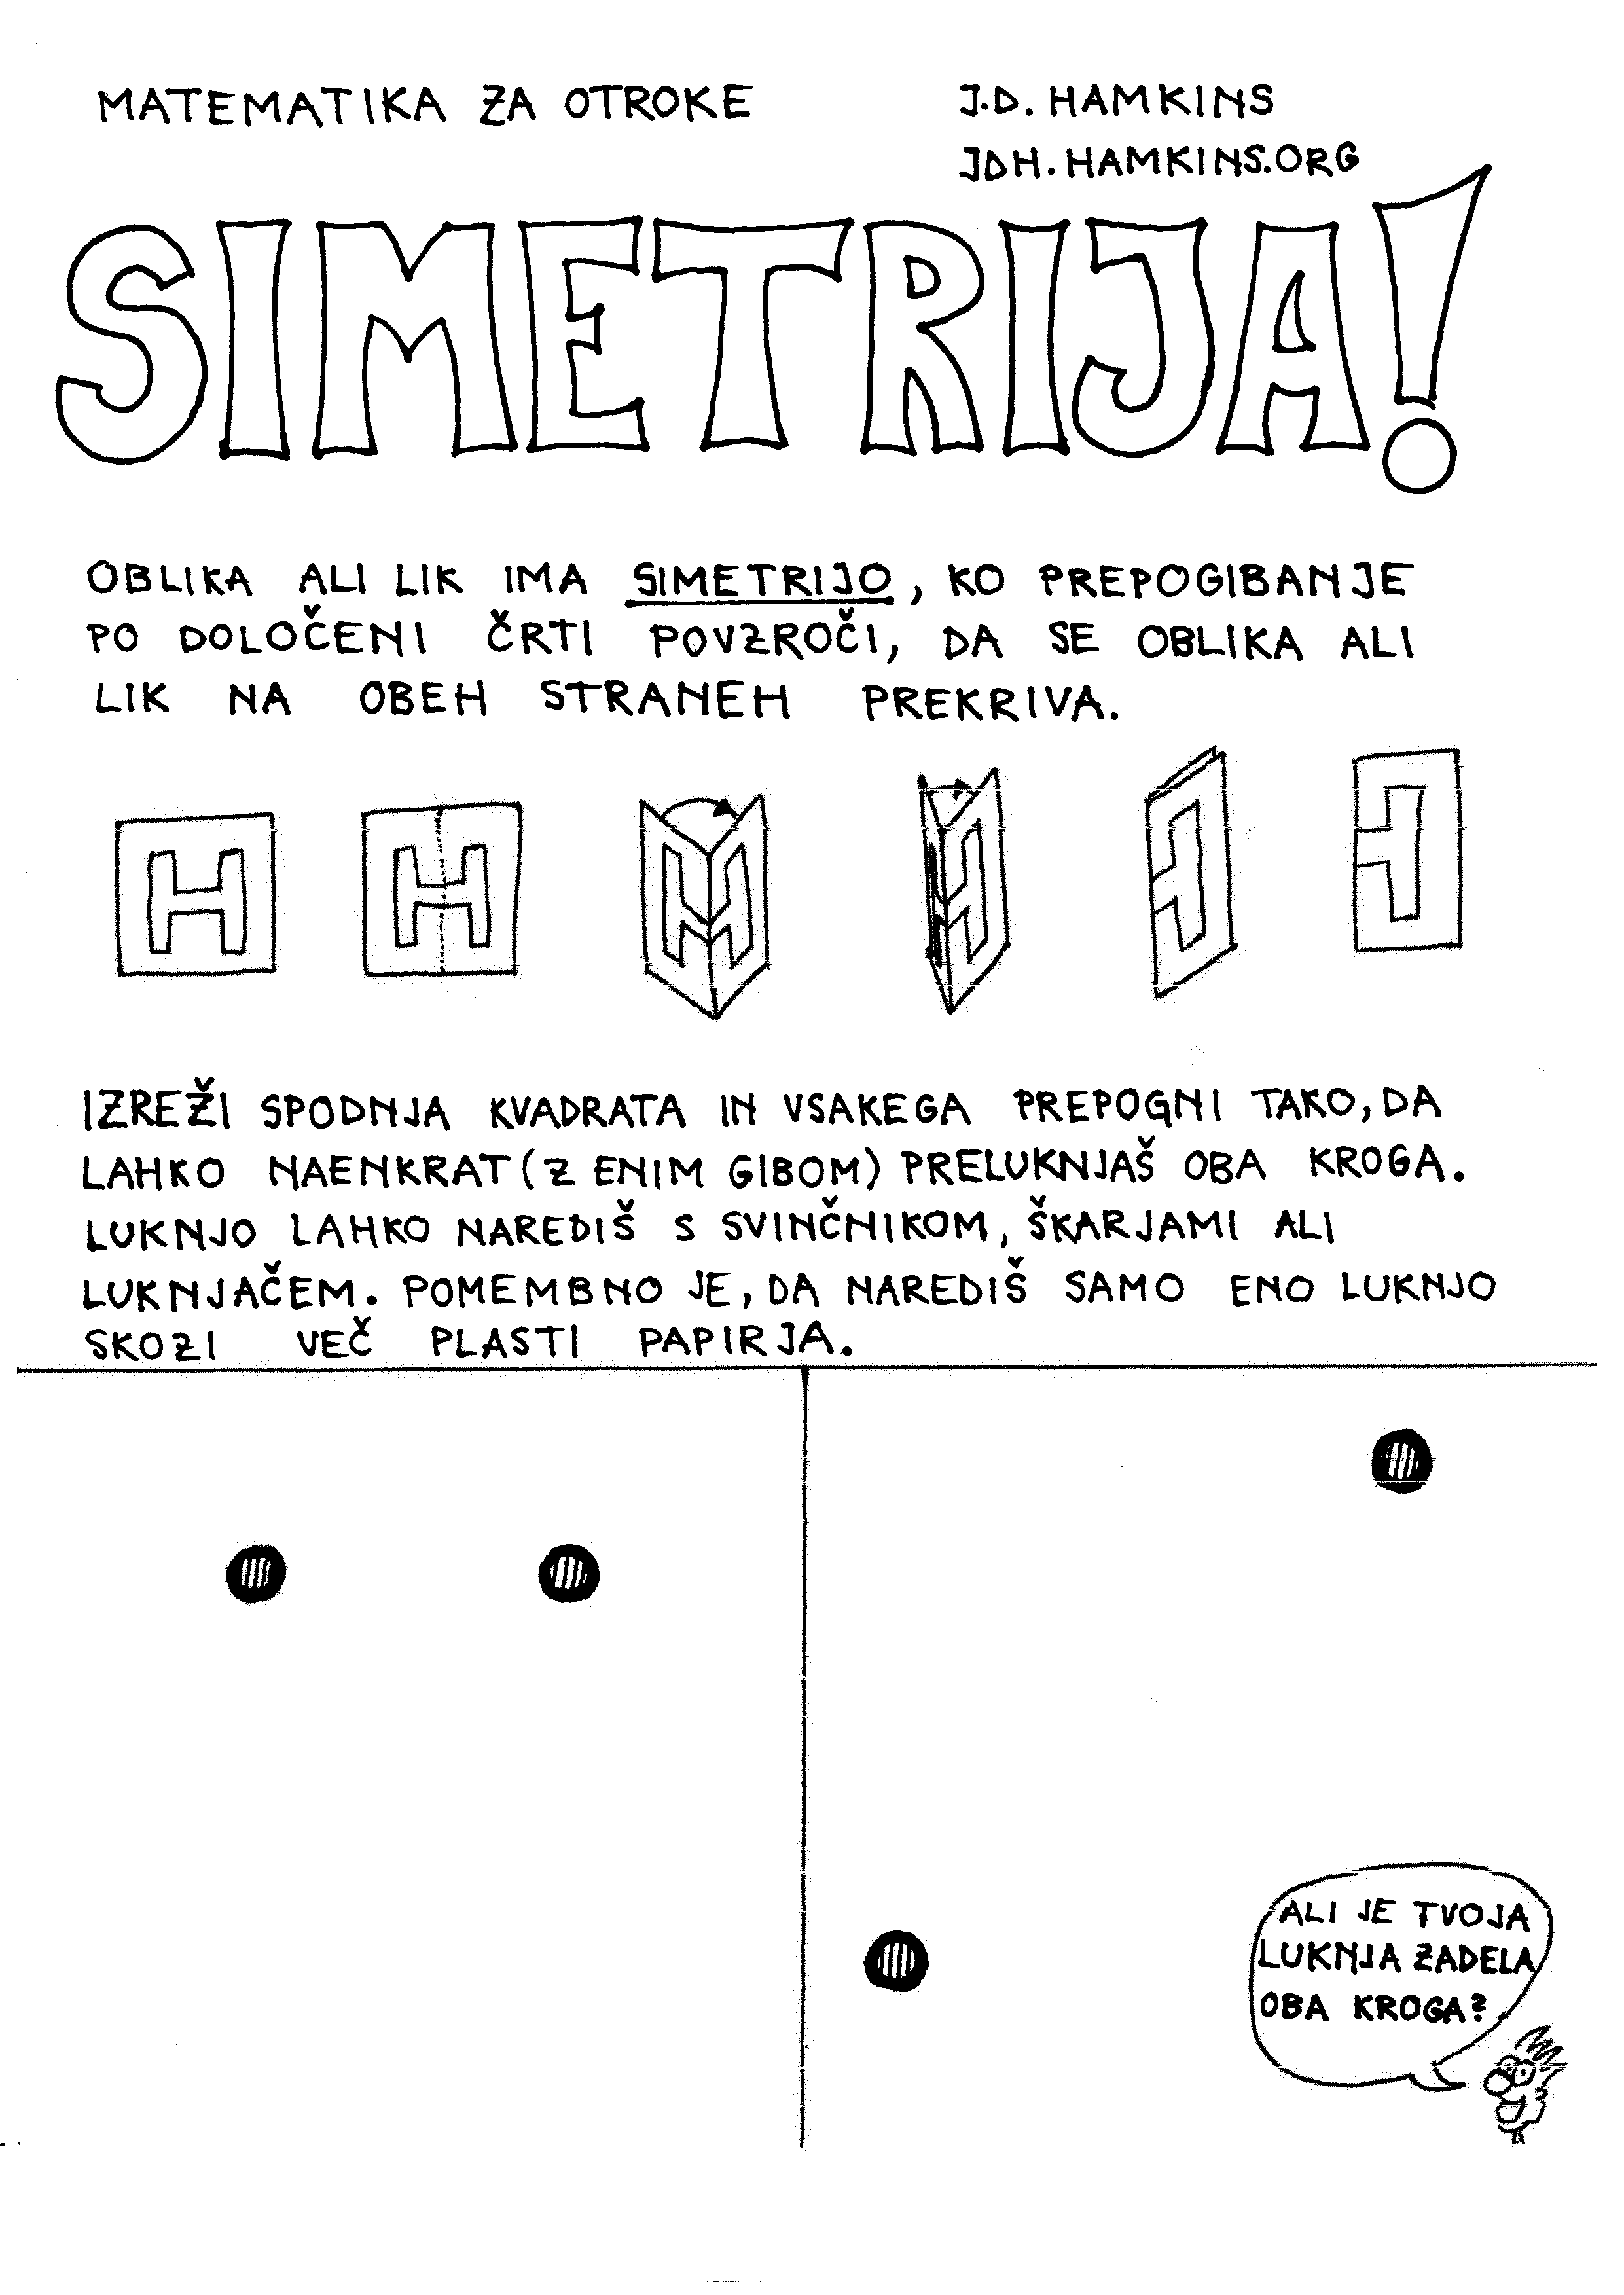 MATEMATIKA ZA OTROKE
J.D. HAMKINS
JDH.HAMKINS.ORG
SIMETRIJA!
OBLIKA ALI LIK IMA SIMETRIJO, KO PREPOGIBANJE
PO DOLOČENI ČRTI POVZROČI, DA SE OBLIKA ALI
LIK NA OBEH STRANEH PREKRIVA.
H H
IZREŽI SPODNJA KVADRATA IN VSAKEGA PREPOGNI TAKO, DA
LAHKO NAENKRAT (Z ENIM GIBOM) PRELUKNJAŠ OBA KROGA.
LUKNJO LAHKO NAREDIŠ S SVINČNIKOM, ŠKARJAMI ALI
LUKNJAČEM. POMEMBNO JE, DA NAREDIŠ SAMO ENO LUKNJO
SKOZI VEČ PLASTI PAPIRJA.
ALI JE TVOJA
LUKNJA ZADELA
OBA KROGA?